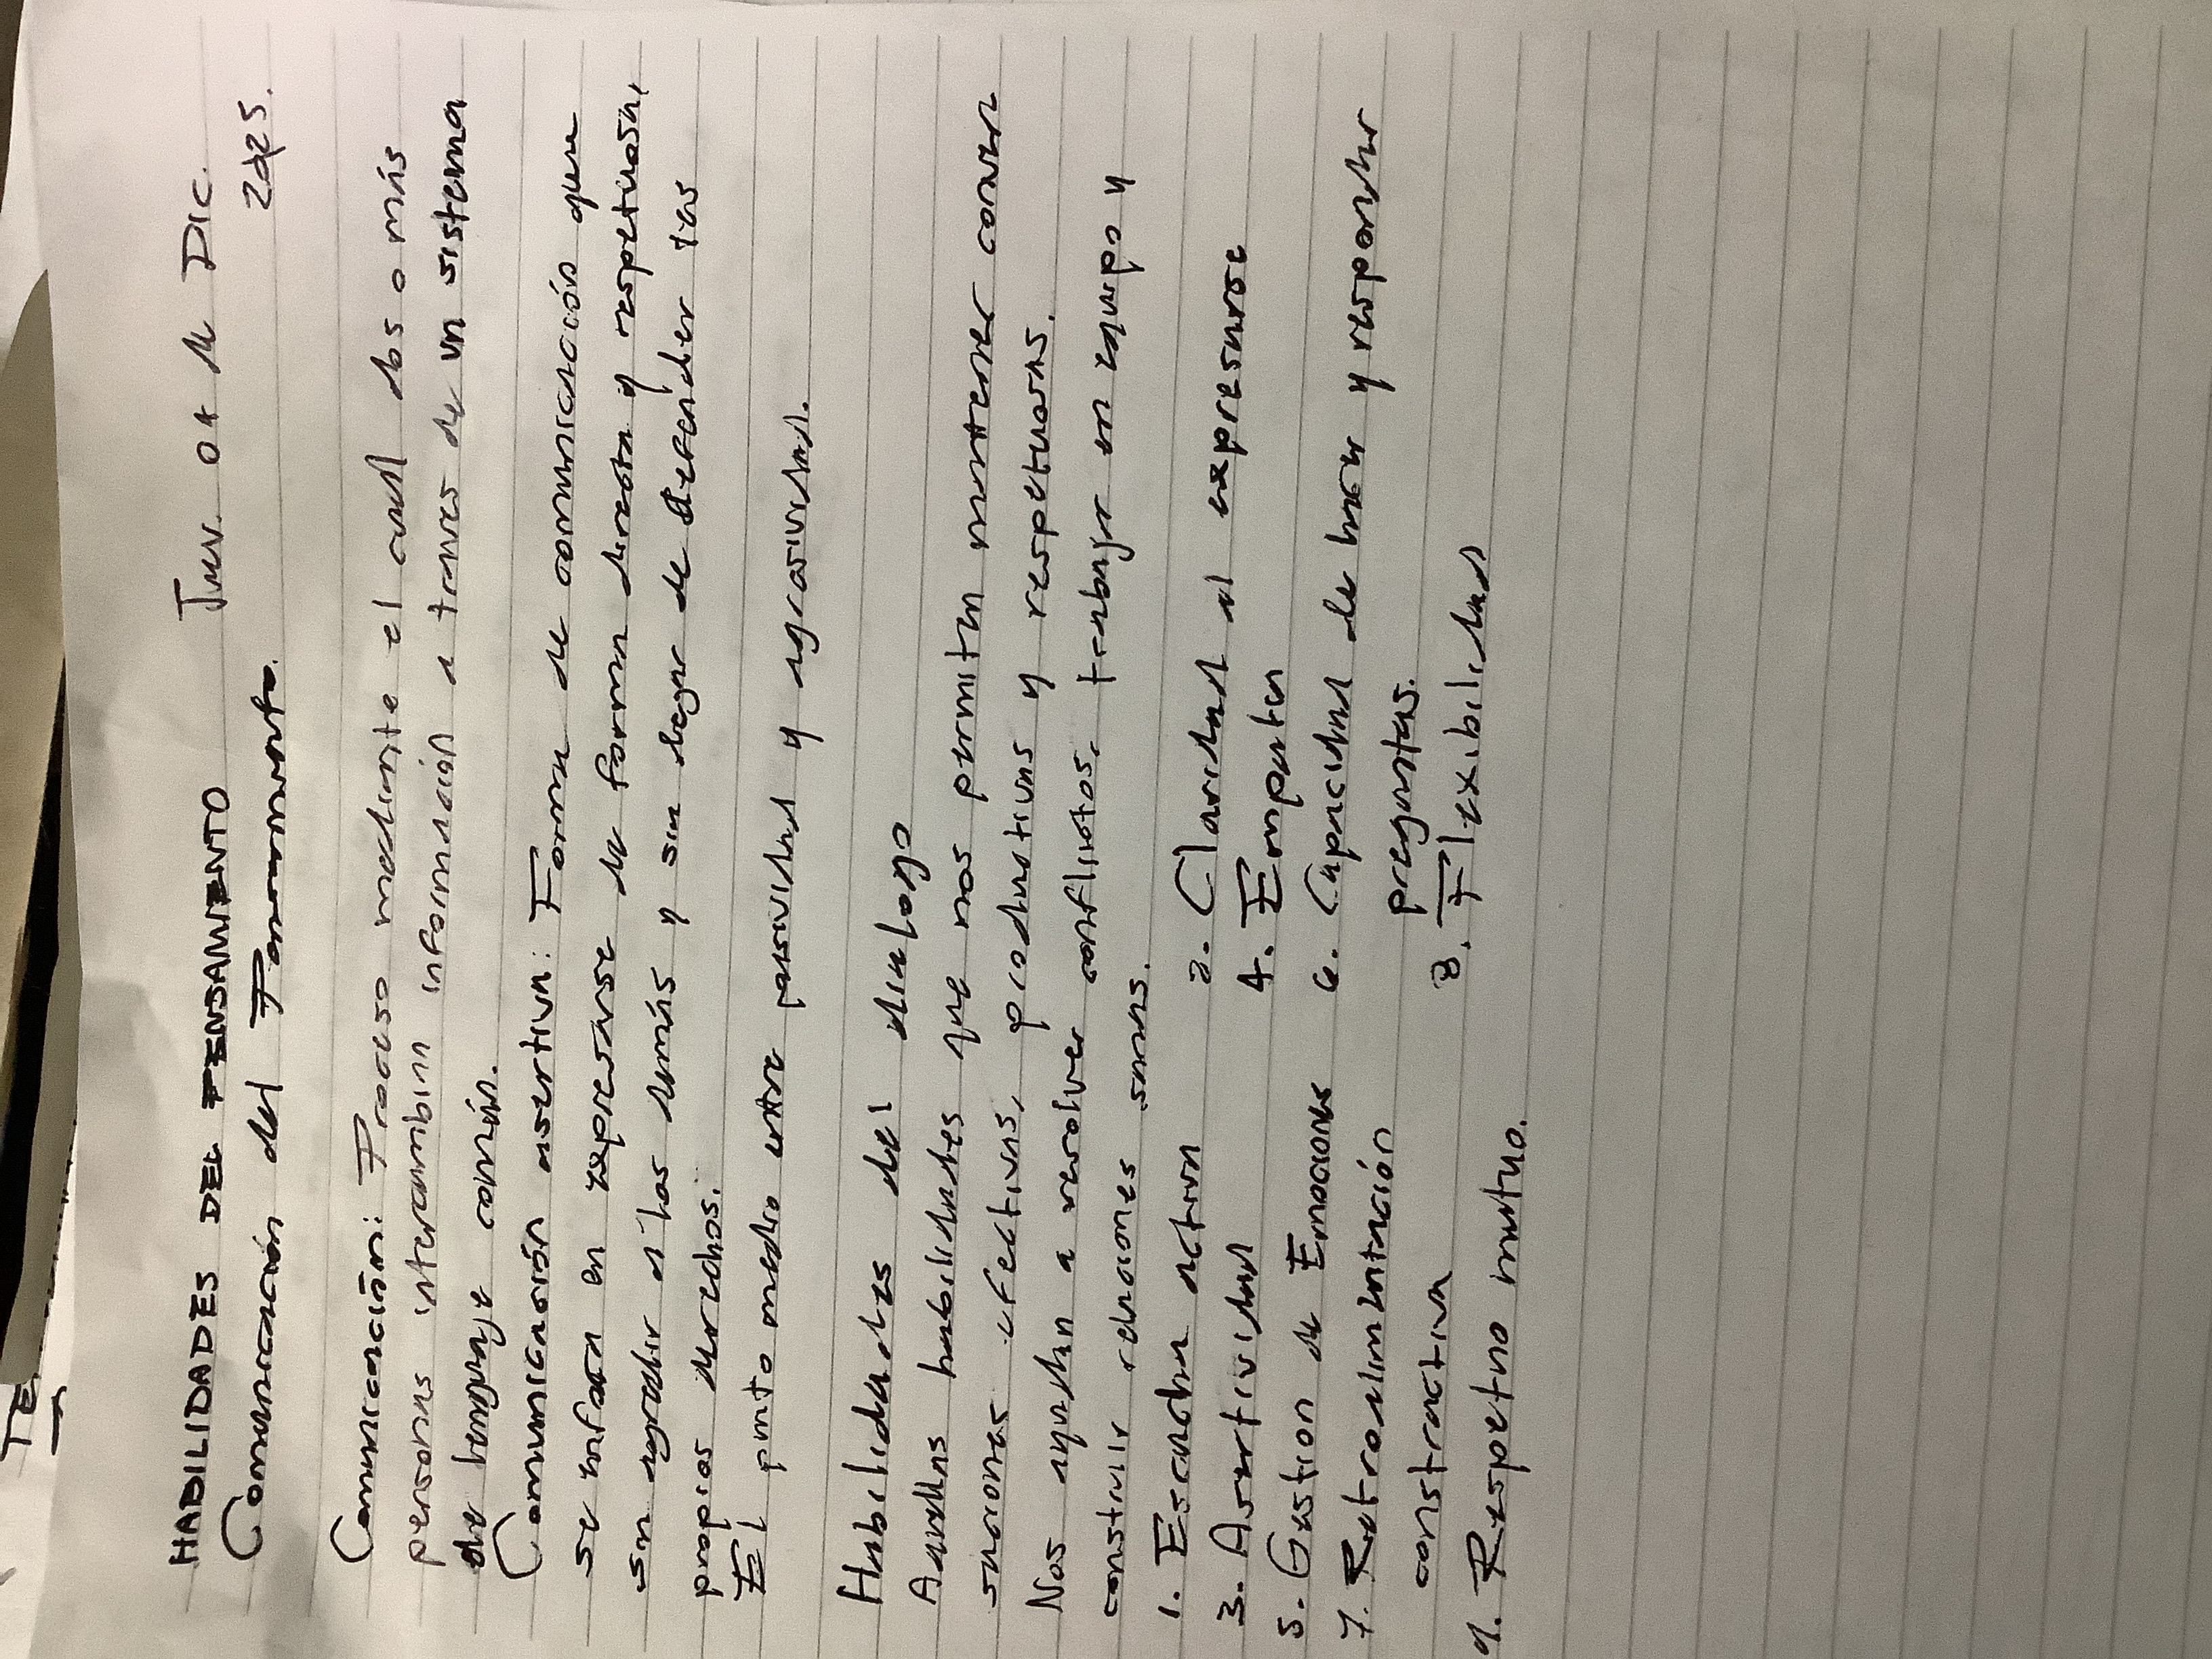 HABILIDADES DEL PENSAMIENTO Juev. 04 de Dic.
Comunicación del Pensamiento. 2025.
Comunicación: Proceso mediante el cual dos o más
personas intercambian información a traves de un sistema
de lenguaje común.
Comunicación asertiva: Forma de comunicación que
se enfoca en expresarse de forma directa y respetuosa,
sin agredir a los demás y sin dejar de defender los
propios derechos.
El punto medio entre pasividad y agresividad.
Habilidades del dialogo
Aquellas habilidades que nos permiten mantener conver
saciones efectivas, productivas y respetuosas.
Nos ayudan a resolver conflictos, trabajar en equipo y
construir relaciones sanas.
1. Escucha activa 2. Claridad al expresarse
3. Asertividad 4. Empatia
5. Gestion de Emociones 6. Capacidad de hacer y responder
7. Retroalimentación preguntas.
constructiva 8. Flexibilidad
9. Respetuo mutuo.